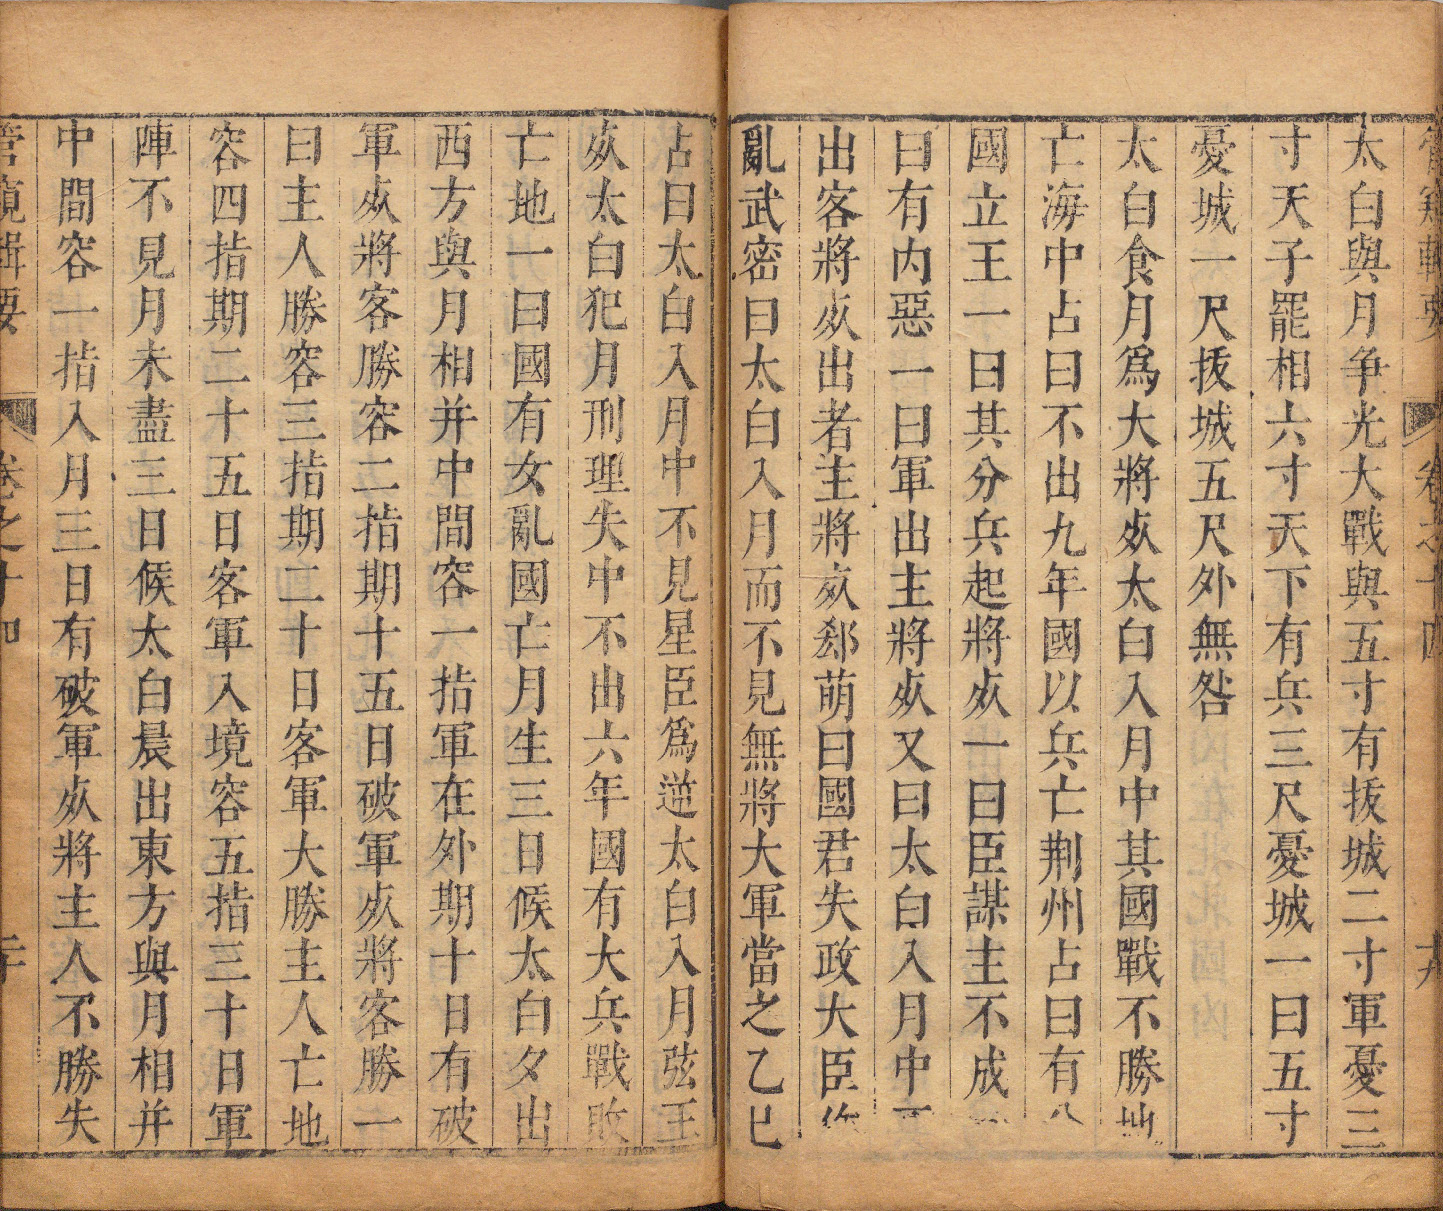 管窺輯要 卷之十四 十九
太白與月爭光大戰與五寸有拔城二寸軍憂三
寸天子罷相六寸天下有兵三尺憂城一曰五寸
憂城一尺拔城五尺外無咎
太白食月爲大將𣦸太白入月中其國戰不勝地
亡海中占曰不出九年國以兵亡荆州占曰有
國立王一曰其分兵起將𣦸一曰臣謀主不成
曰有內惡一曰軍出主將𣦸又曰太白入月中
出客將𣦸出者主將𣦸郄萌曰國君失政大臣
亂武密曰太白入月而不見無將大軍當之乙巳
占曰太白入月中不見星臣爲逆太白入月弦王
𣦸太白犯月刑理失中不出六年國有大兵戰敗
亡地一曰國有女亂國亡月生三日候太白夕出
西方與月相并中間容一指軍在外期十日有破
軍𣦸將客勝容二指期十五日破軍𣦸將客勝一
曰主人勝容三指期二十日客軍大勝主人亡地
容四指期二十五日客軍入境容五指三十日軍
陣不見月未盡三日候太白晨出東方與月相并
中間容一指入月三日有破軍𣦸將主人不勝失
管窺輯要 卷之十四 二十